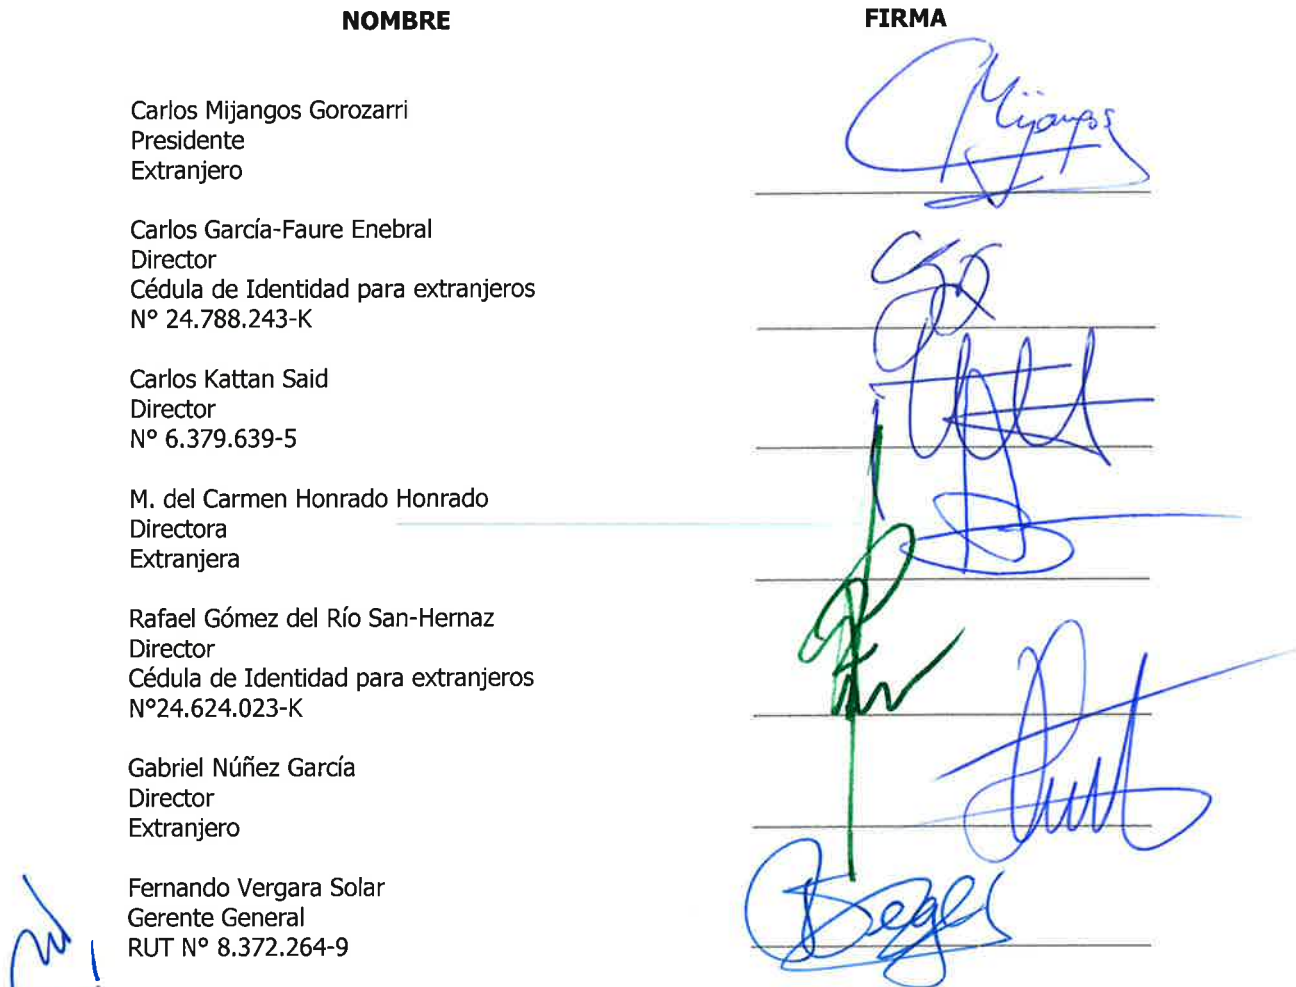 NOMBRE FIRMA
Carlos Mijangos Gorozarri
Presidente
Extranjero
Mijangos
Carlos García-Faure Enebral
Director
Cédula de Identidad para extranjeros
Nº 24.788.243-K
Carlos Kattan Said
Director
Nº 6.379.639-5
M. del Carmen Honrado Honrado
Directora
Extranjera
Rafael Gómez del Río San-Hernaz
Director
Cédula de Identidad para extranjeros
Nº24.624.023-K
Gabriel Núñez García
Director
Extranjero
Fernando Vergara Solar
Gerente General
RUT Nº 8.372.264-9